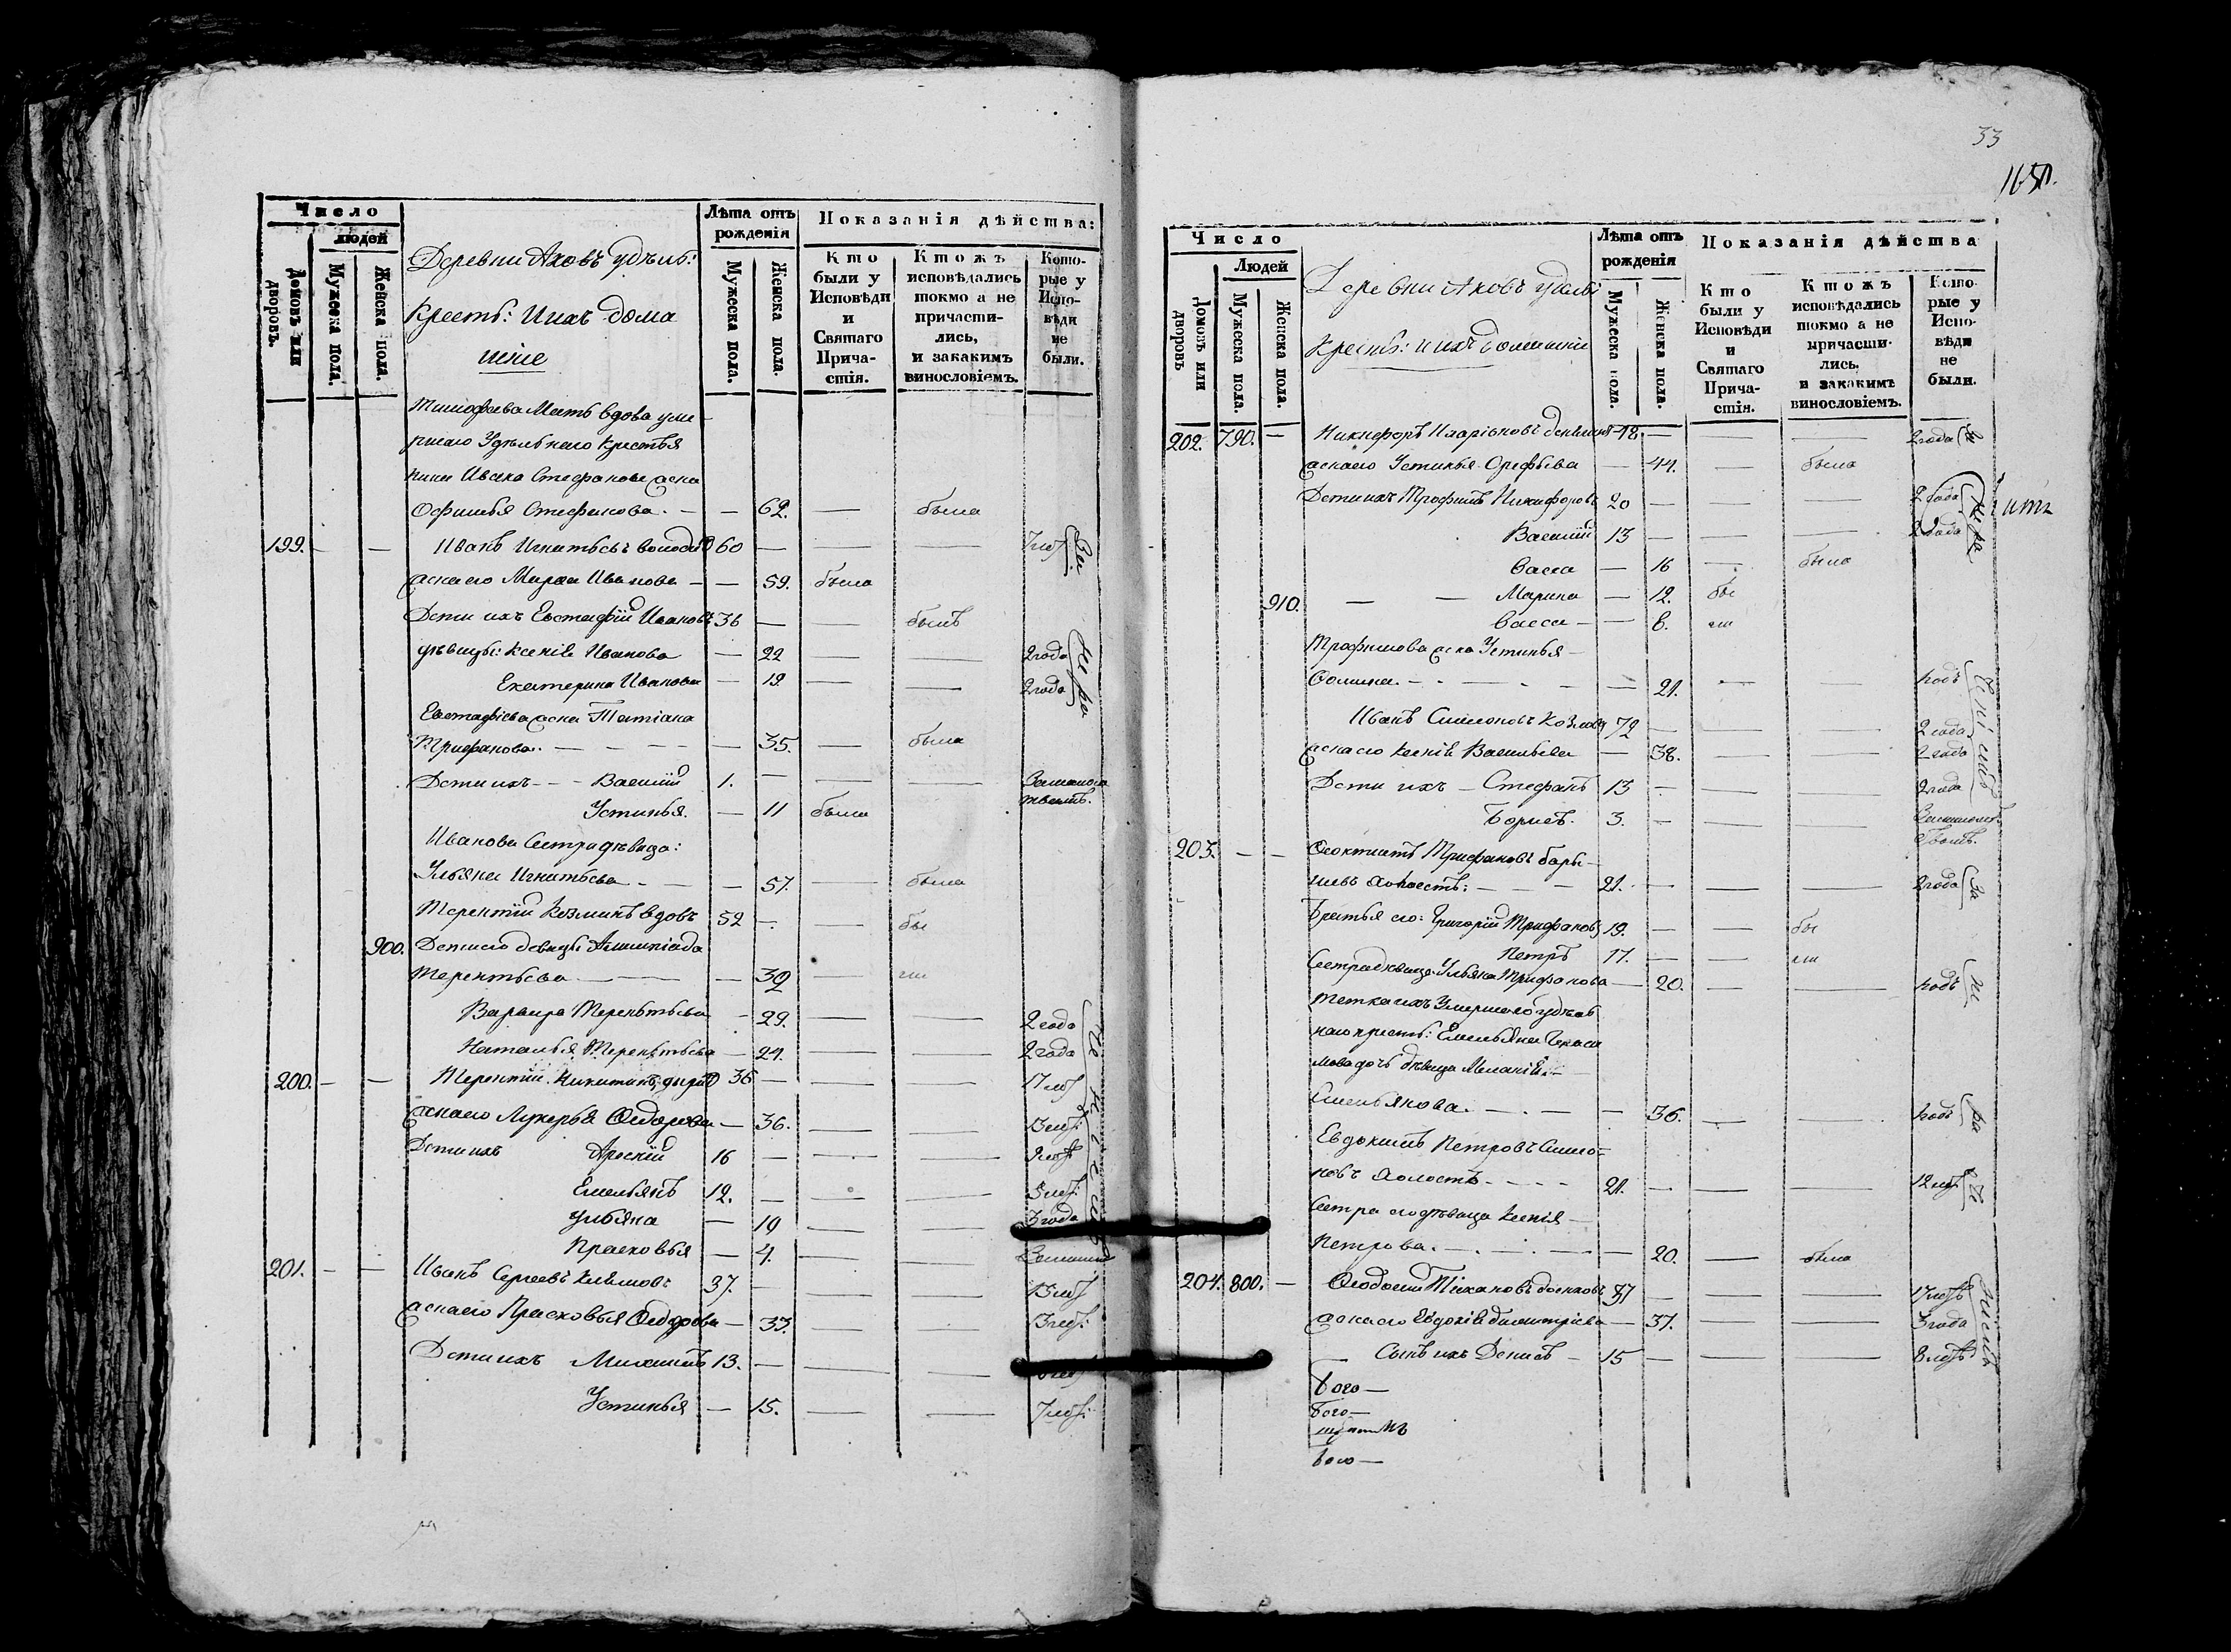 Число
людей
Домовъ или дворовъ.
Мужеска пола.
Женска пола.
Деревни Аховъ удѣль:
кресть: и ихъ дома
шніе
Лѣта отъ рожденія
Мужеска пола.
Женска пола.
Показанія дѣйства:
Кто были у Исповѣди и Святаго Причастія.
Ктожъ исповѣдались токмо а не причастились, и закакимъ винословіемъ.
Которые у Исповѣди не были.
Тимофеева Мать вдова уме
ршаго Удѣльнаго крестья
нина Ивана Стефанова жена
Офимья Стефанова. — — 62. — была
199. — — Иванъ Игнатьевъ 60 — — — 7лѣт
жена его Марѳа Иванова — — 59. была
Дети ихъ Евстафій Ивановъ 36 — — былъ
дѣвицы: Ксенія Иванова — 22 — — 2 года
Екатерина Иванова — 19 — — 2 года
Евстафіева жена Татіана
Трифанова. — — — — — 35. — была
Дети ихъ — — Василій 1. — — —
Устинья. — 11 была
Иванова Сестра дѣвица:
Ульяна Игнатьева — — — 57. — была
Терентій Козминъ вдовъ 52 — — бы
900. Дети его девицы
Терентьева — — — — ли
Варвара Терентьева — 29. — — 2 года
Наталья Терентьева — 24. — — 2 года
200. — — Терентій Никитинъ 36 — — — 17 лѣт
жена его Лукерья Ѳедорова — 36. — — 13 лѣт:
Дети ихъ Арсеній 16 — — — 9 лѣт
Емельянъ 12. — — — 5 лѣт:
Ульяна — 10 — — 3 года
Прасковья — 4. — —
201. — — Иванъ Сергеевъ Климовъ 37. — — — 13 лѣт
жена его Прасковья Ѳедорова — 33. — — 13 лѣт:
Дети ихъ Михаилъ 13. — — —
Устинья — 15. — — 7 лѣт:
33
Число
Людей
Домовъ или дворовъ
Мужеска пола.
Женска пола.
Деревни Аховъ удель
крестъ: и ихъ домашніе
Лѣта отъ рожденія
Мужеска пола.
Женска пола.
Показанія дѣйства
Кто были у Исповѣди и Святаго Причастія.
Ктожъ исповѣдались токмо а не причастились, и закакимъ винословіемъ.
Которые у Исповѣди не были.
202. 790. — Никифоръ Иларіоновъ — — — 2 года
жена его Устинья Орефьева — 44. — была
Дети ихъ Трофимъ Никифоровъ 20 — — — 2 года
Василій 13 — — — 2 года
Васса — 16 — была
910. — — Марина — 12. бы
Васса — — 8. ли
Трофимова жена Устинья —
Ѳомина. — — — — — 21. — — годъ
Иванъ Симоновъ Козловъ 72 — — — 2 года
жена его Ксенія Васильева — 38. — — 2 года
Дети ихъ — Стефанъ 13 — — — 2 года
Борисъ. 3. — — —
203. — — Ѳеоктистъ Трифановъ бары —
шевъ холостъ: — — — 21. — — — 2 года
Братья его: Григорій Трифановъ 19. — — бы
Петръ 17. — — ли
Сестра дѣвица Ульяна Трифанова — 20. — — годъ
Тетка ихъ Умершаго удѣль
наго крестъ: Емельяна
дочь дѣвица Меланія —
Емельянова. — — — — 36. — — годъ
Евдокимъ Петровъ Симо-
новъ холостъ — — — — 21. — — — 12 лѣт
Сестра его дѣвица Ксенія —
Петрова. — — — — — 20. — была
204. 800. — Ѳеодосій Тихановъ 37 — — — 17 лѣтъ
жена его Евдокія Димитріева — 37. — — 3 года
— Сынъ ихъ Денисъ — 15 — — — 8 лѣтъ